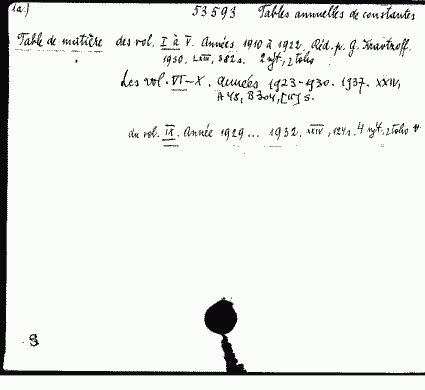 (a.) 53593 Tables annuelles de constantes
Table de matière des vol. I à V. Années 1910 à 1922. Réd. p. G. Kravtzoff.
1930. LXIII, 382 s. 2 nft, 2 folio
Les vol. VI-X. Années 1923-1930. 1937. XXIV,
A 48, B 304, [IV] s.
du vol. IX. Année 1929 ... 1932. XXIV, 124 s. 4 nft, 2 folio